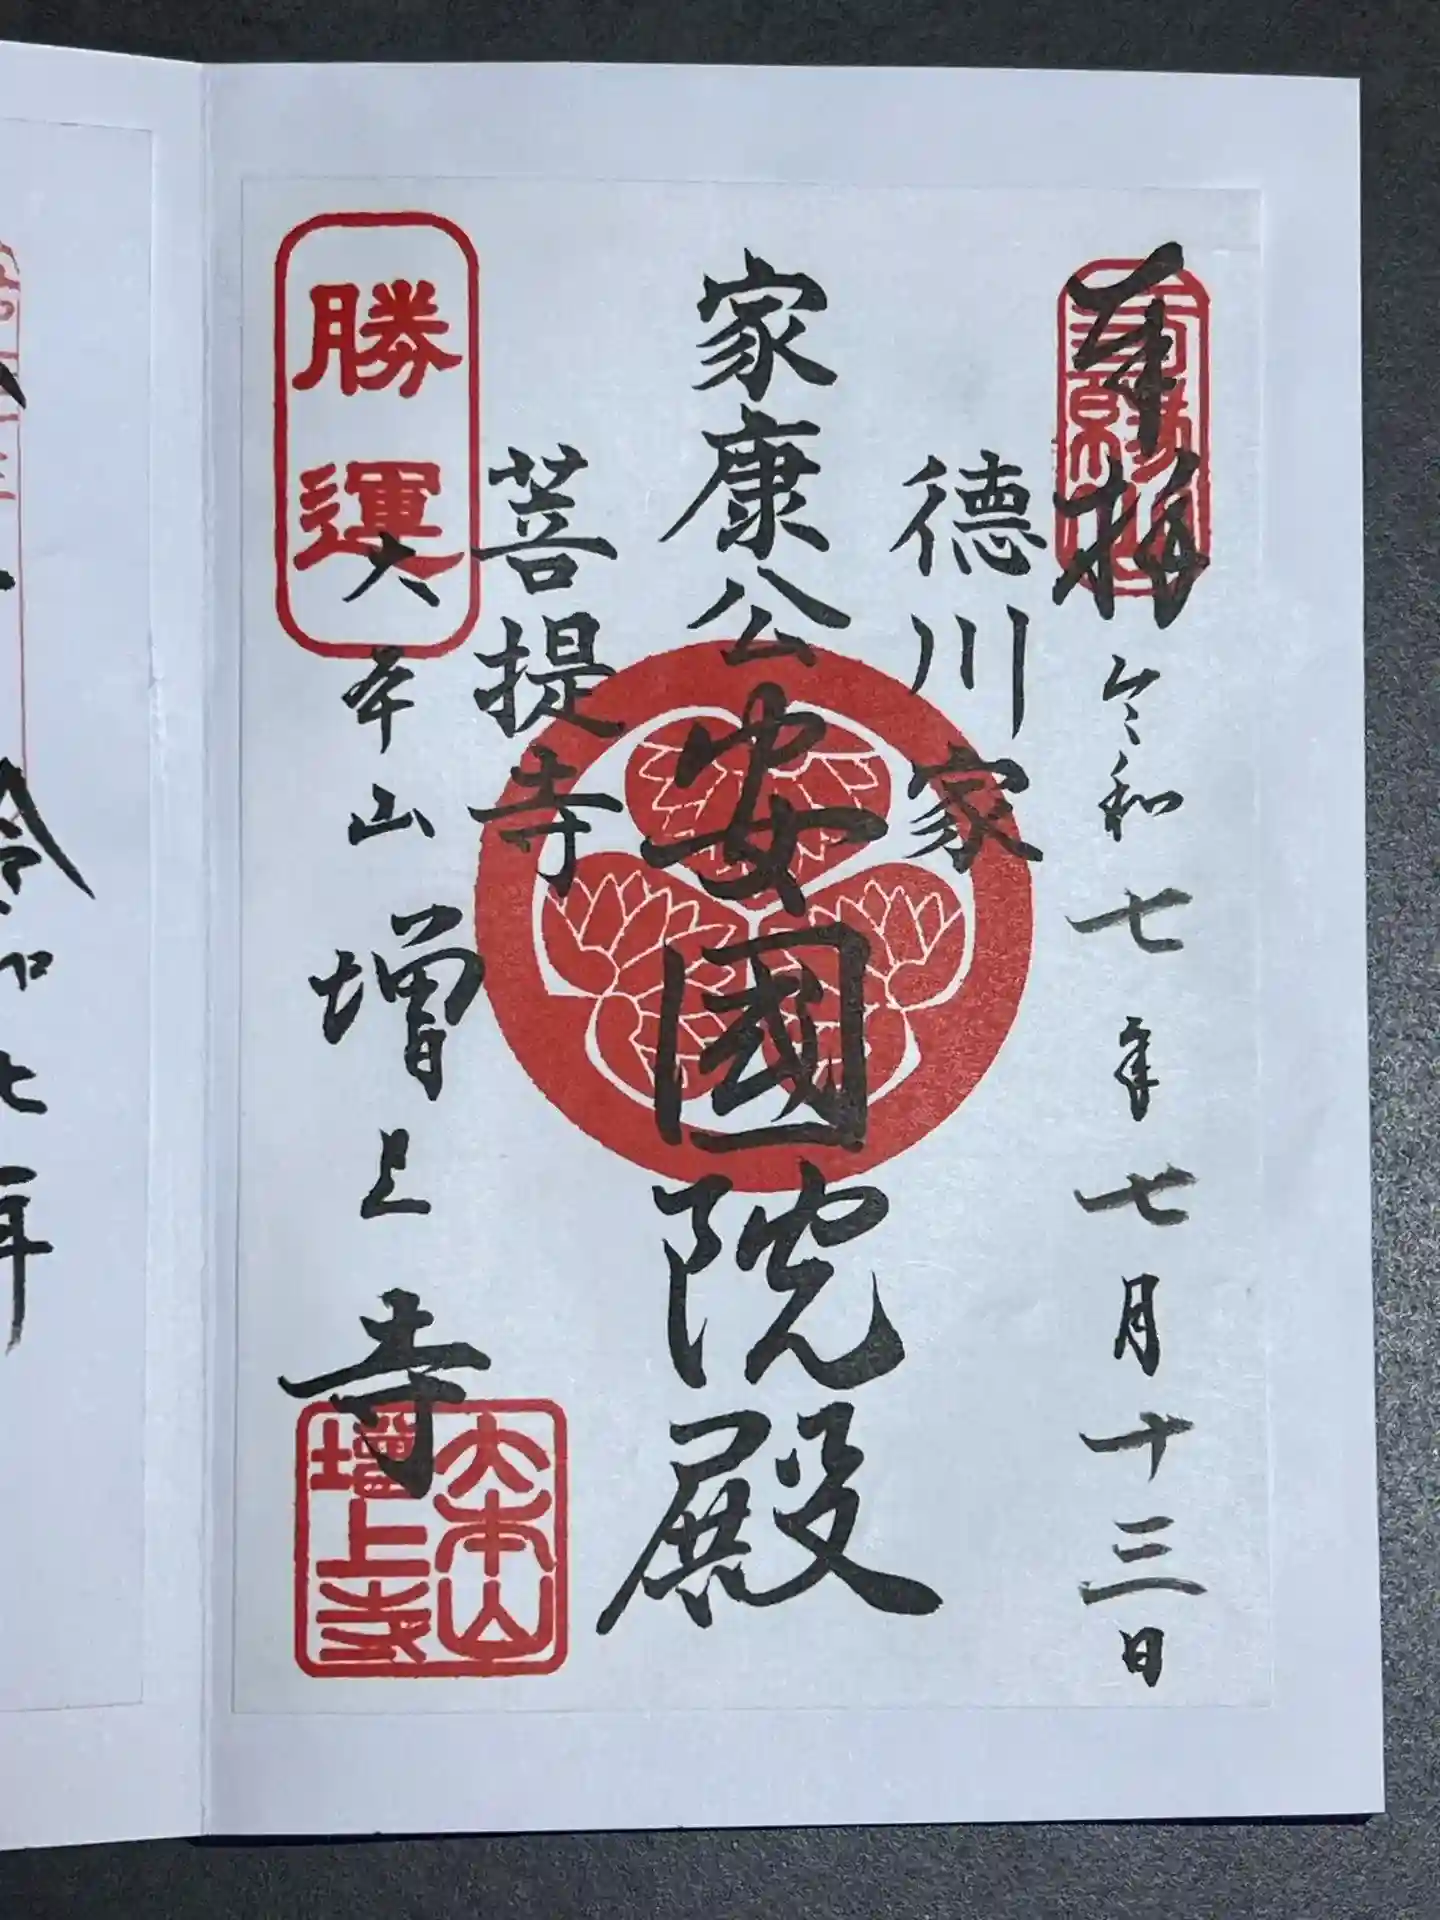 奉拝
令和七年七月十三日
徳川家
家康公
安國院殿
菩提寺
勝運
大本山
増上寺
大本山
増上寺